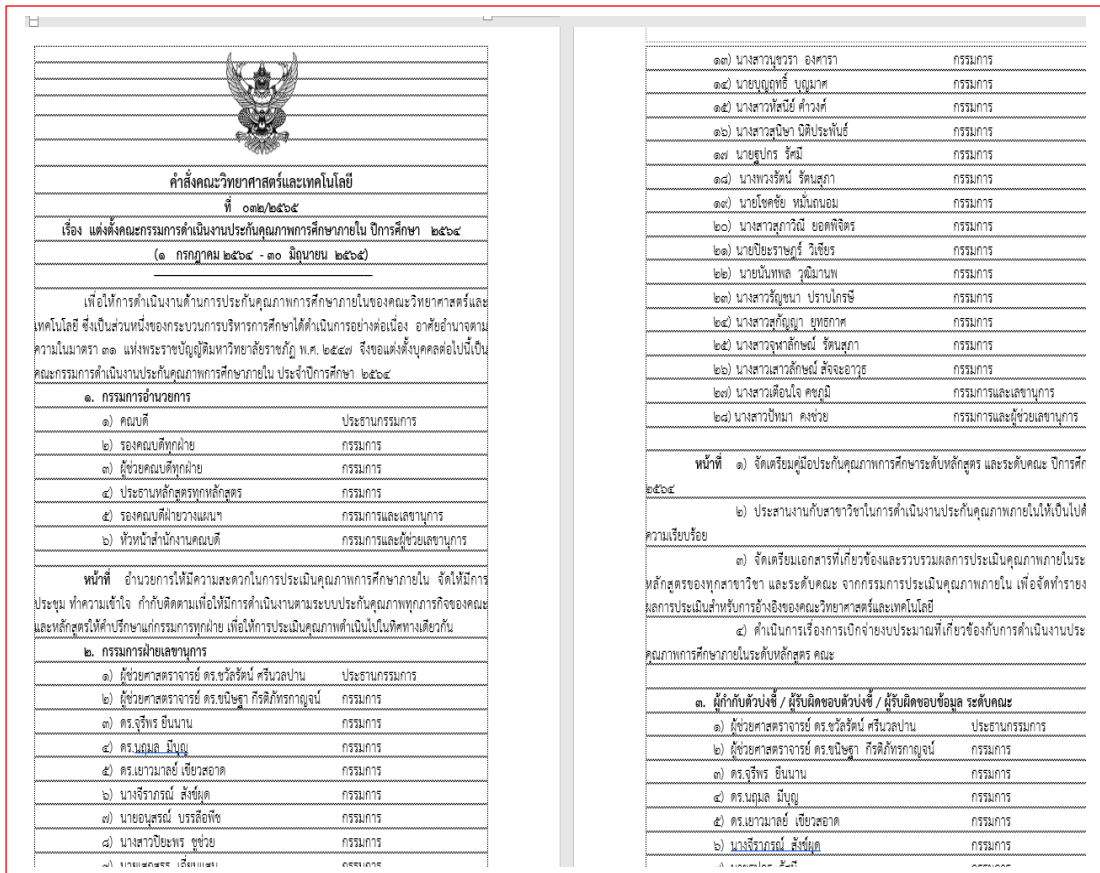 คำสั่งคณะวิทยาศาสตร์และเทคโนโลยี
ที่ ๐๓๒/๒๕๖๕
เรื่อง แต่งตั้งคณะกรรมการดำเนินงานประกันคุณภาพการศึกษาภายใน ปีการศึกษา ๒๕๖๔
(๑ กรกฎาคม ๒๕๖๔ - ๓๐ มิถุนายน ๒๕๖๕)
เพื่อให้การดำเนินงานด้านการประกันคุณภาพการศึกษาภายในของคณะวิทยาศาสตร์และ
เทคโนโลยี ซึ่งเป็นส่วนหนึ่งของกระบวนการบริหารการศึกษาได้ดำเนินการอย่างต่อเนื่อง อาศัยอำนาจตาม
ความในมาตรา ๓๑ แห่งพระราชบัญญัติมหาวิทยาลัยราชภัฏ พ.ศ. ๒๕๔๗ จึงขอแต่งตั้งบุคคลต่อไปนี้เป็น
คณะกรรมการดำเนินงานประกันคุณภาพการศึกษาภายใน ประจำปีการศึกษา ๒๕๖๔
๑. กรรมการอำนวยการ
๑) คณบดี ประธานกรรมการ
๒) รองคณบดีทุกฝ่าย กรรมการ
๓) ผู้ช่วยคณบดีทุกฝ่าย กรรมการ
๔) ประธานหลักสูตรทุกหลักสูตร กรรมการ
๕) รองคณบดีฝ่ายวางแผนฯ กรรมการและเลขานุการ
๖) หัวหน้าสำนักงานคณบดี กรรมการและผู้ช่วยเลขานุการ
หน้าที่ อำนวยการให้มีความสะดวกในการประเมินคุณภาพการศึกษาภายใน จัดให้มีการ
ประชุม ทำความเข้าใจ กำกับติดตามเพื่อให้มีการดำเนินงานตามระบบประกันคุณภาพทุกภารกิจของคณะ
และหลักสูตรให้คำปรึกษาแก่กรรมการทุกฝ่าย เพื่อให้การประเมินคุณภาพดำเนินไปในทิศทางเดียวกัน
๒. กรรมการฝ่ายเลขานุการ
๑) ผู้ช่วยศาสตราจารย์ ดร.ชวัลรัตน์ ศรีนวลปาน ประธานกรรมการ
๒) ผู้ช่วยศาสตราจารย์ ดร.ขนิษฐา กีรติภัทรกาญจน์ กรรมการ
๓) ดร.จุรีพร ยืนนาน กรรมการ
๔) ดร.นฤมล มีบุญ กรรมการ
๕) ดร.เยาวมาลย์ เขียวสอาด กรรมการ
๖) นางจีราภรณ์ สังข์ผุด กรรมการ
๗) นายอนุสรณ์ บรรลือพืช กรรมการ
๘) นางสาวปิยะพร ชูช่วย กรรมการ
๑๓) นางสาวนุชวรา องศารา กรรมการ
๑๔) นายบุญฤทธิ์ บุญมาศ กรรมการ
๑๕) นางสาวทัสนีย์ คำวงค์ กรรมการ
๑๖) นางสาวสุนิษา นิติประพันธ์ กรรมการ
๑๗ นายฐปกร รัศมี กรรมการ
๑๘) นางพวงรัตน์ รัตนสุภา กรรมการ
๑๙) นายโชคชัย หมั่นถนอม กรรมการ
๒๐) นางสาวสุภาวิณี ยอดพิจิตร กรรมการ
๒๑) นายปิยะราษฎร์ วิเชียร กรรมการ
๒๒) นายนันทพล วุฒิมานพ กรรมการ
๒๓) นางสาวรัญชนา ปราบไกรษี กรรมการ
๒๔) นางสาวสุกัญญา ยุทธกาศ กรรมการ
๒๕) นางสาวจุฬาลักษณ์ รัตนสุภา กรรมการ
๒๖) นางสาวเสาวลักษณ์ สัจจะอาวุธ กรรมการ
๒๗) นางสาวเตือนใจ คชภูมิ กรรมการและเลขานุการ
๒๘) นางสาวปัทมา คงช่วย กรรมการและผู้ช่วยเลขานุการ
หน้าที่ ๑) จัดเตรียมคู่มือประกันคุณภาพการศึกษาระดับหลักสูตร และระดับคณะ ปีการศึก
๒๕๖๔
๒) ประสานงานกับสาขาวิชาในการดำเนินงานประกันคุณภาพภายในให้เป็นไปด้
ความเรียบร้อย
๓) จัดเตรียมเอกสารที่เกี่ยวข้องและรวบรวมผลการประเมินคุณภาพภายในระ
หลักสูตรของทุกสาขาวิชา และระดับคณะ จากกรรมการประเมินคุณภาพภายใน เพื่อจัดทำรายง
ผลการประเมินสำหรับการอ้างอิงของคณะวิทยาศาสตร์และเทคโนโลยี
๔) ดำเนินการเรื่องการเบิกจ่ายงบประมาณที่เกี่ยวข้องกับการดำเนินงานประ
คุณภาพการศึกษาภายในระดับหลักสูตร คณะ
๓. ผู้กำกับตัวบ่งชี้ / ผู้รับผิดชอบตัวบ่งชี้ / ผู้รับผิดชอบข้อมูล ระดับคณะ
๑) ผู้ช่วยศาสตราจารย์ ดร.ชวัลรัตน์ ศรีนวลปาน ประธานกรรมการ
๒) ผู้ช่วยศาสตราจารย์ ดร.ขนิษฐา กีรติภัทรกาญจน์ กรรมการ
๓) ดร.จุรีพร ยืนนาน กรรมการ
๔) ดร.นฤมล มีบุญ กรรมการ
๕) ดร.เยาวมาลย์ เขียวสอาด กรรมการ
๖) นางจีราภรณ์ สังข์ผุด กรรมการ